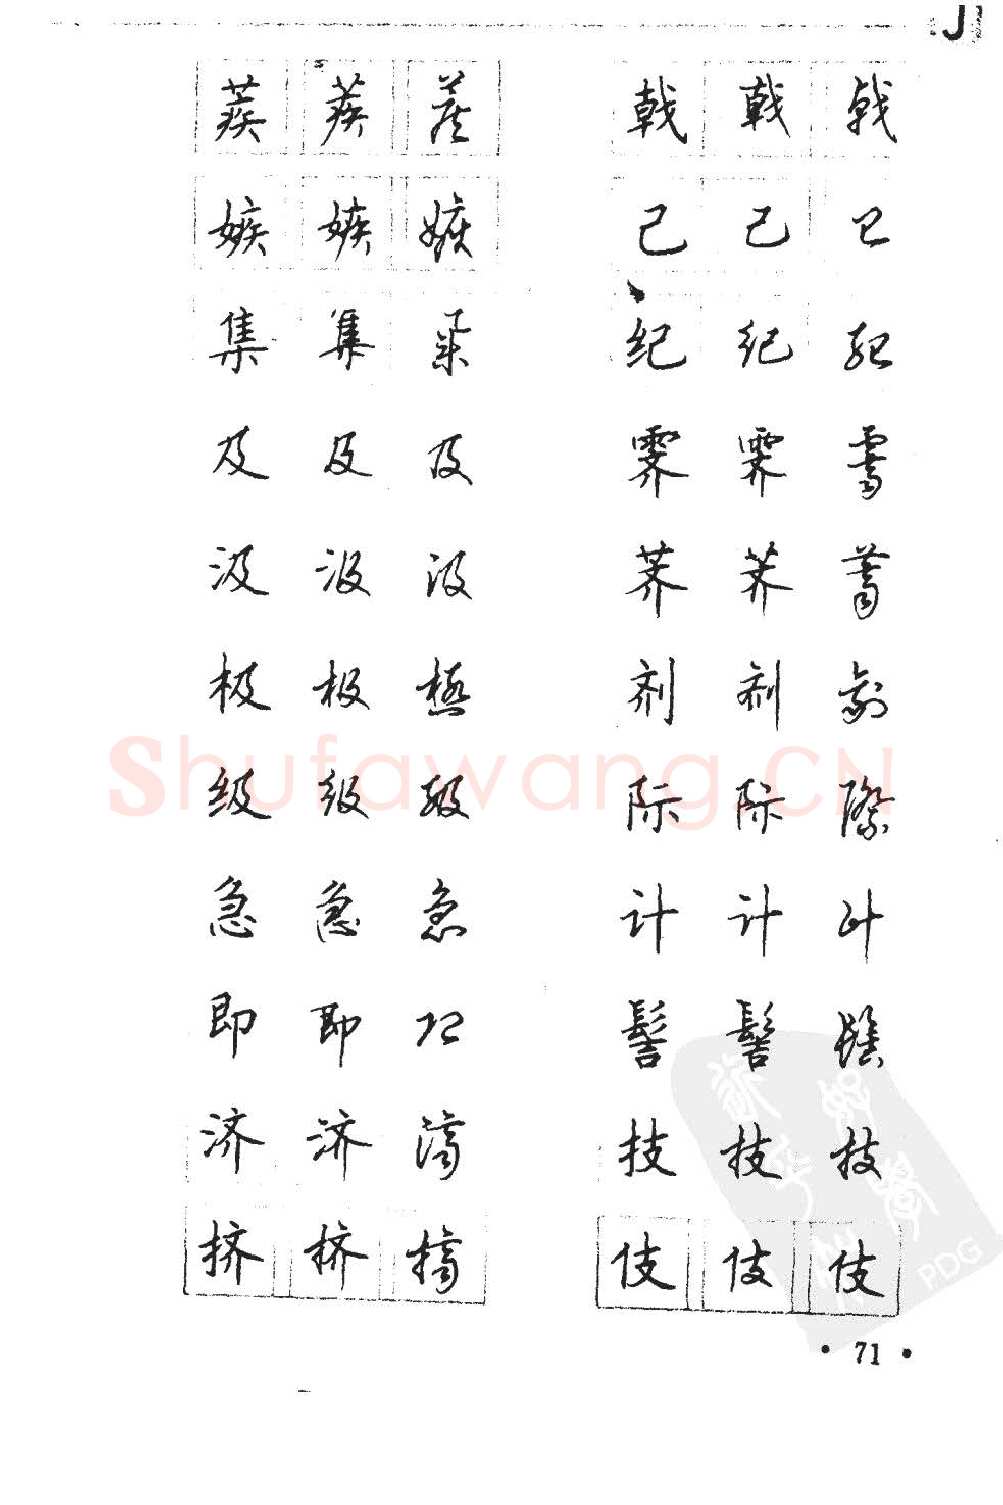 J
蒺 蒺 蒺 戟 戟 戟
嫉 嫉 嫉 己 己 己
集 集 集 纪 纪 纪
及 及 及 霁 霁 霽
汲 汲 汲 荠 荠 薺
极 极 極 剂 剂 劑
级 级 级 际 际 際
急 急 急 计 计 计
即 即 即 髻 髻 髻
济 济 濟 技 技 技
挤 挤 擠 伎 伎 伎
Shufawang.CN
PDG
• 71 •